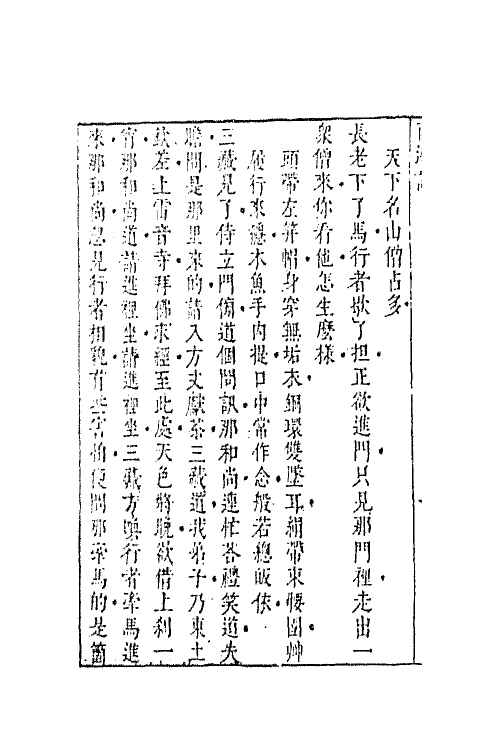 天下名山僧占多
長老下了馬行者歇了担正欲進門只見那門裡走出一
衆僧來你看他怎生麽樣
頭帶左笄帽身穿無垢衣銅環雙墜耳絹帶束腰圍艸
履行來穩木魚手內提口中常作念般若總皈依
三藏見了侍立門傍道個問訊那和尚連忙荅禮笑道失
瞻問是那里來的請入方丈獻茶三藏道我弟子乃東土
欽差上雷音寺拜佛求經至此處天色將晚欲借上刹一
宵那和尚道請進裡坐請進裡坐三藏方喚行者牽馬進
來那和尚忽見行者相貌有些害怕便問那牽馬的是箇